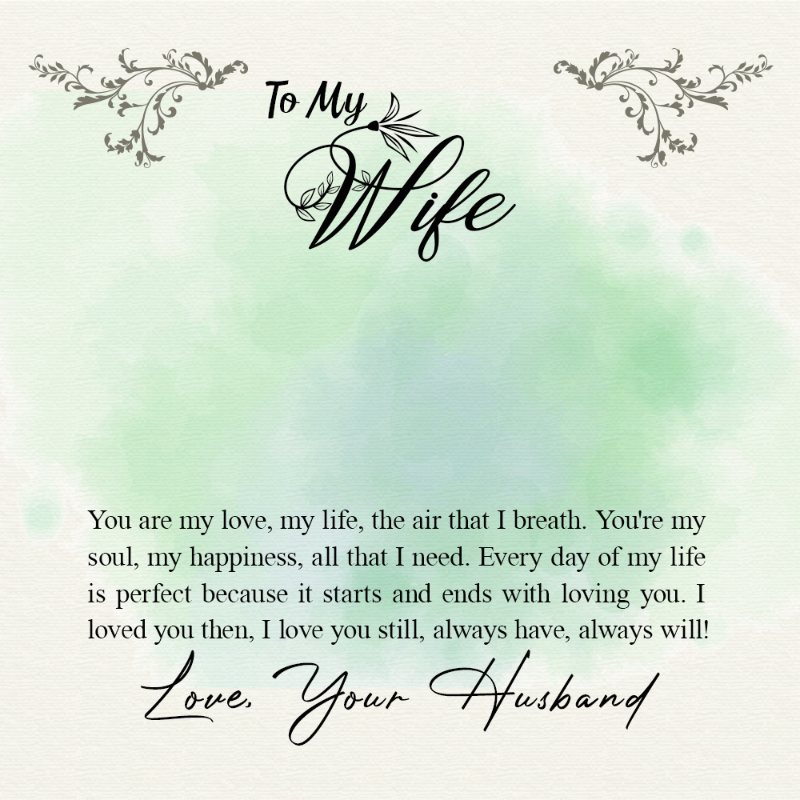 To My
Wife
You are my love, my life, the air that I breath. You're my
soul, my happiness, all that I need. Every day of my life
is perfect because it starts and ends with loving you. I
loved you then, I love you still, always have, always will!
Love, Your Husband